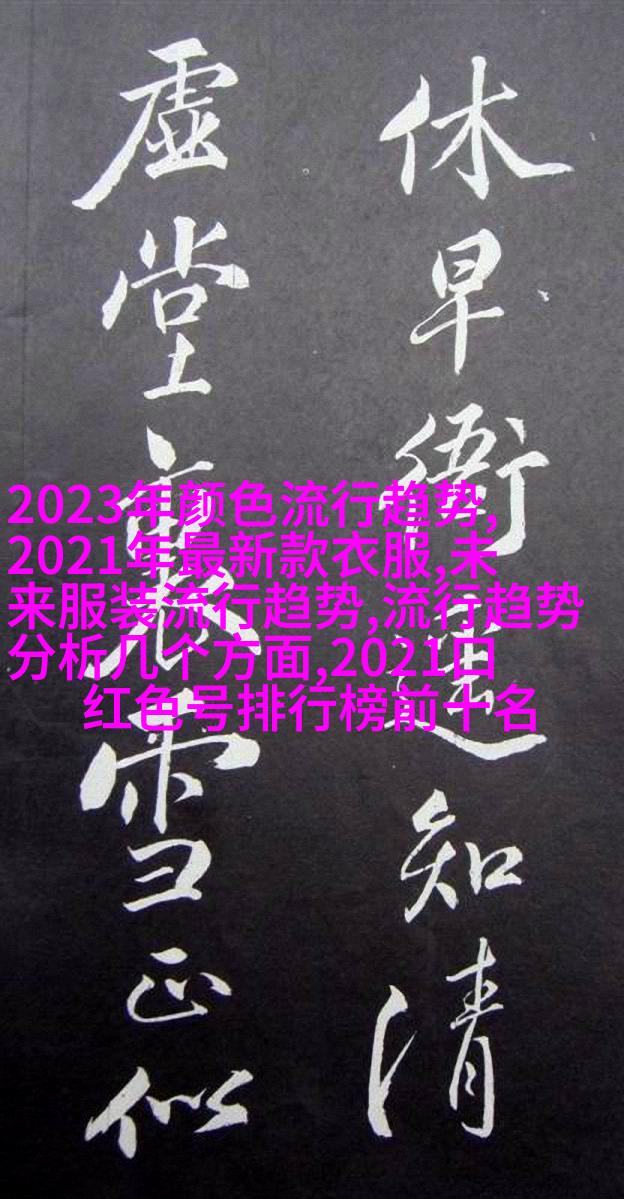 休早衙遥知清
虚堂裏雪正似
2023年颜色流行趋势,
2021年最新款衣服,未
来服装流行趋势,流行趋势
分析几个方面,2021口
红色号排行榜前十名